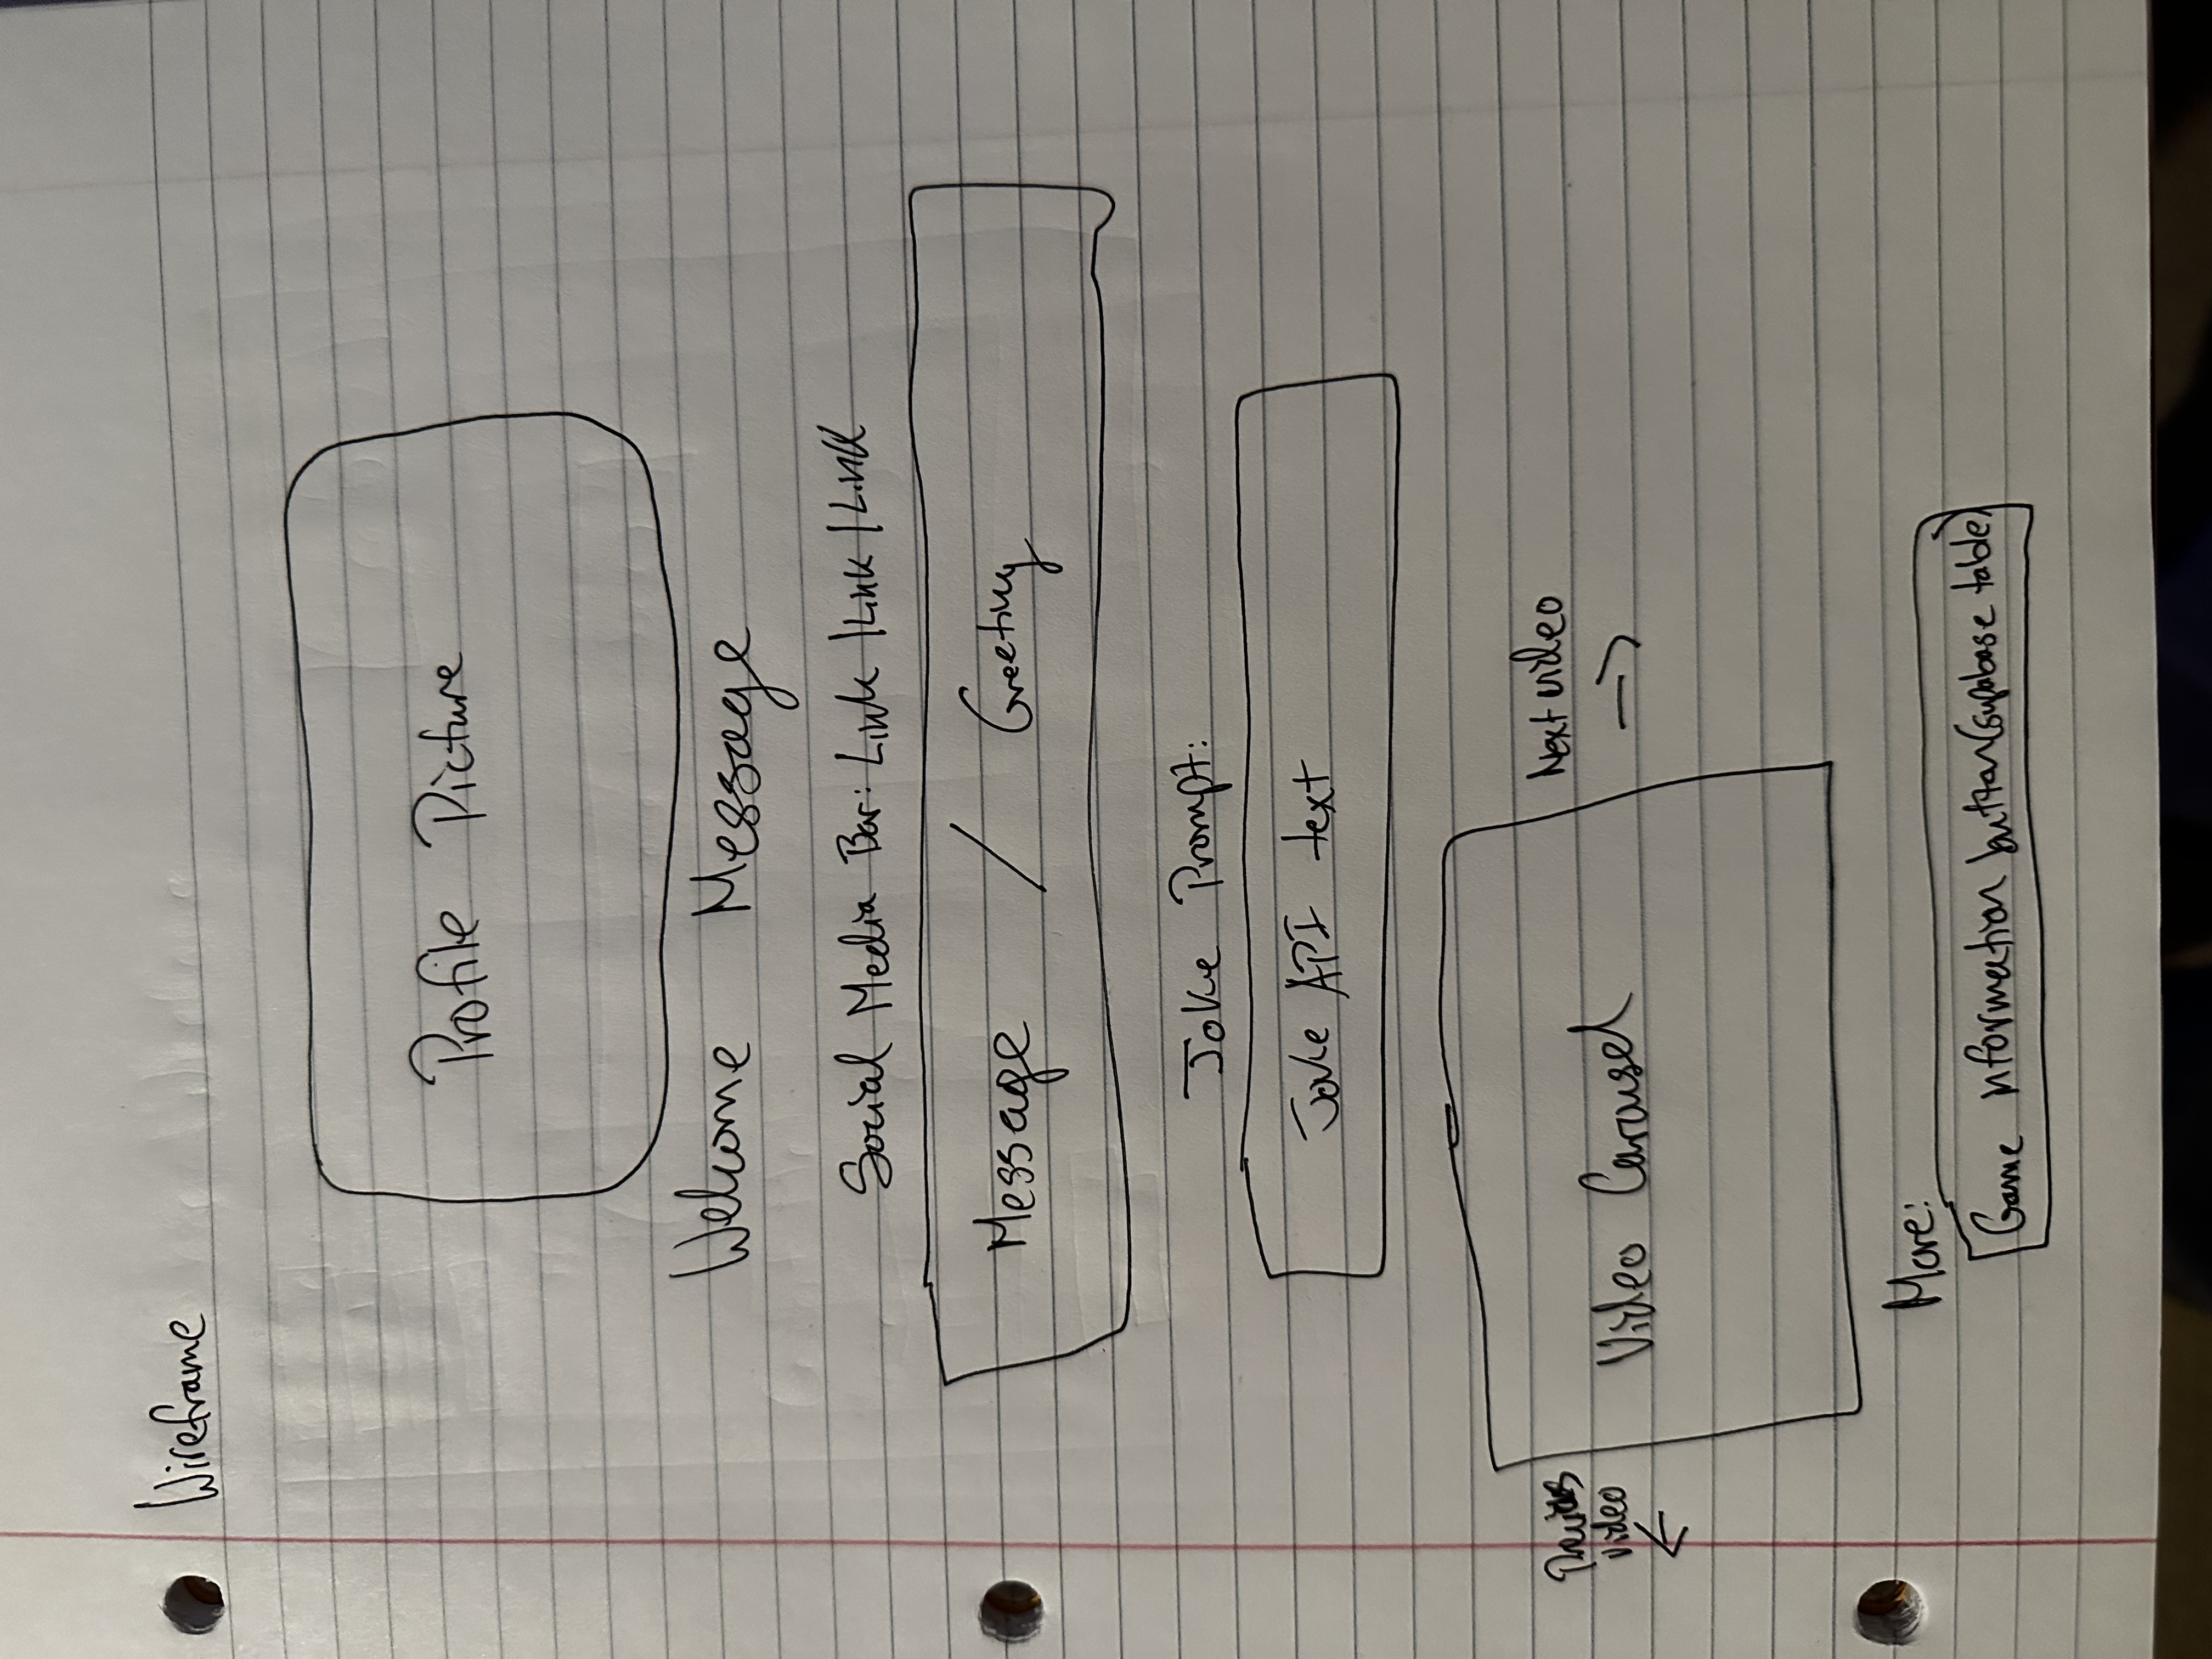 Wireframe
Profile Picture
Welcome Message
Social Media Bar: Link | Link | Link
Message / Greeting
Joke Prompt:
Joke API text
Previous
video
←
Video Carousel
Next video
→
More:
Game information button (supabase table)